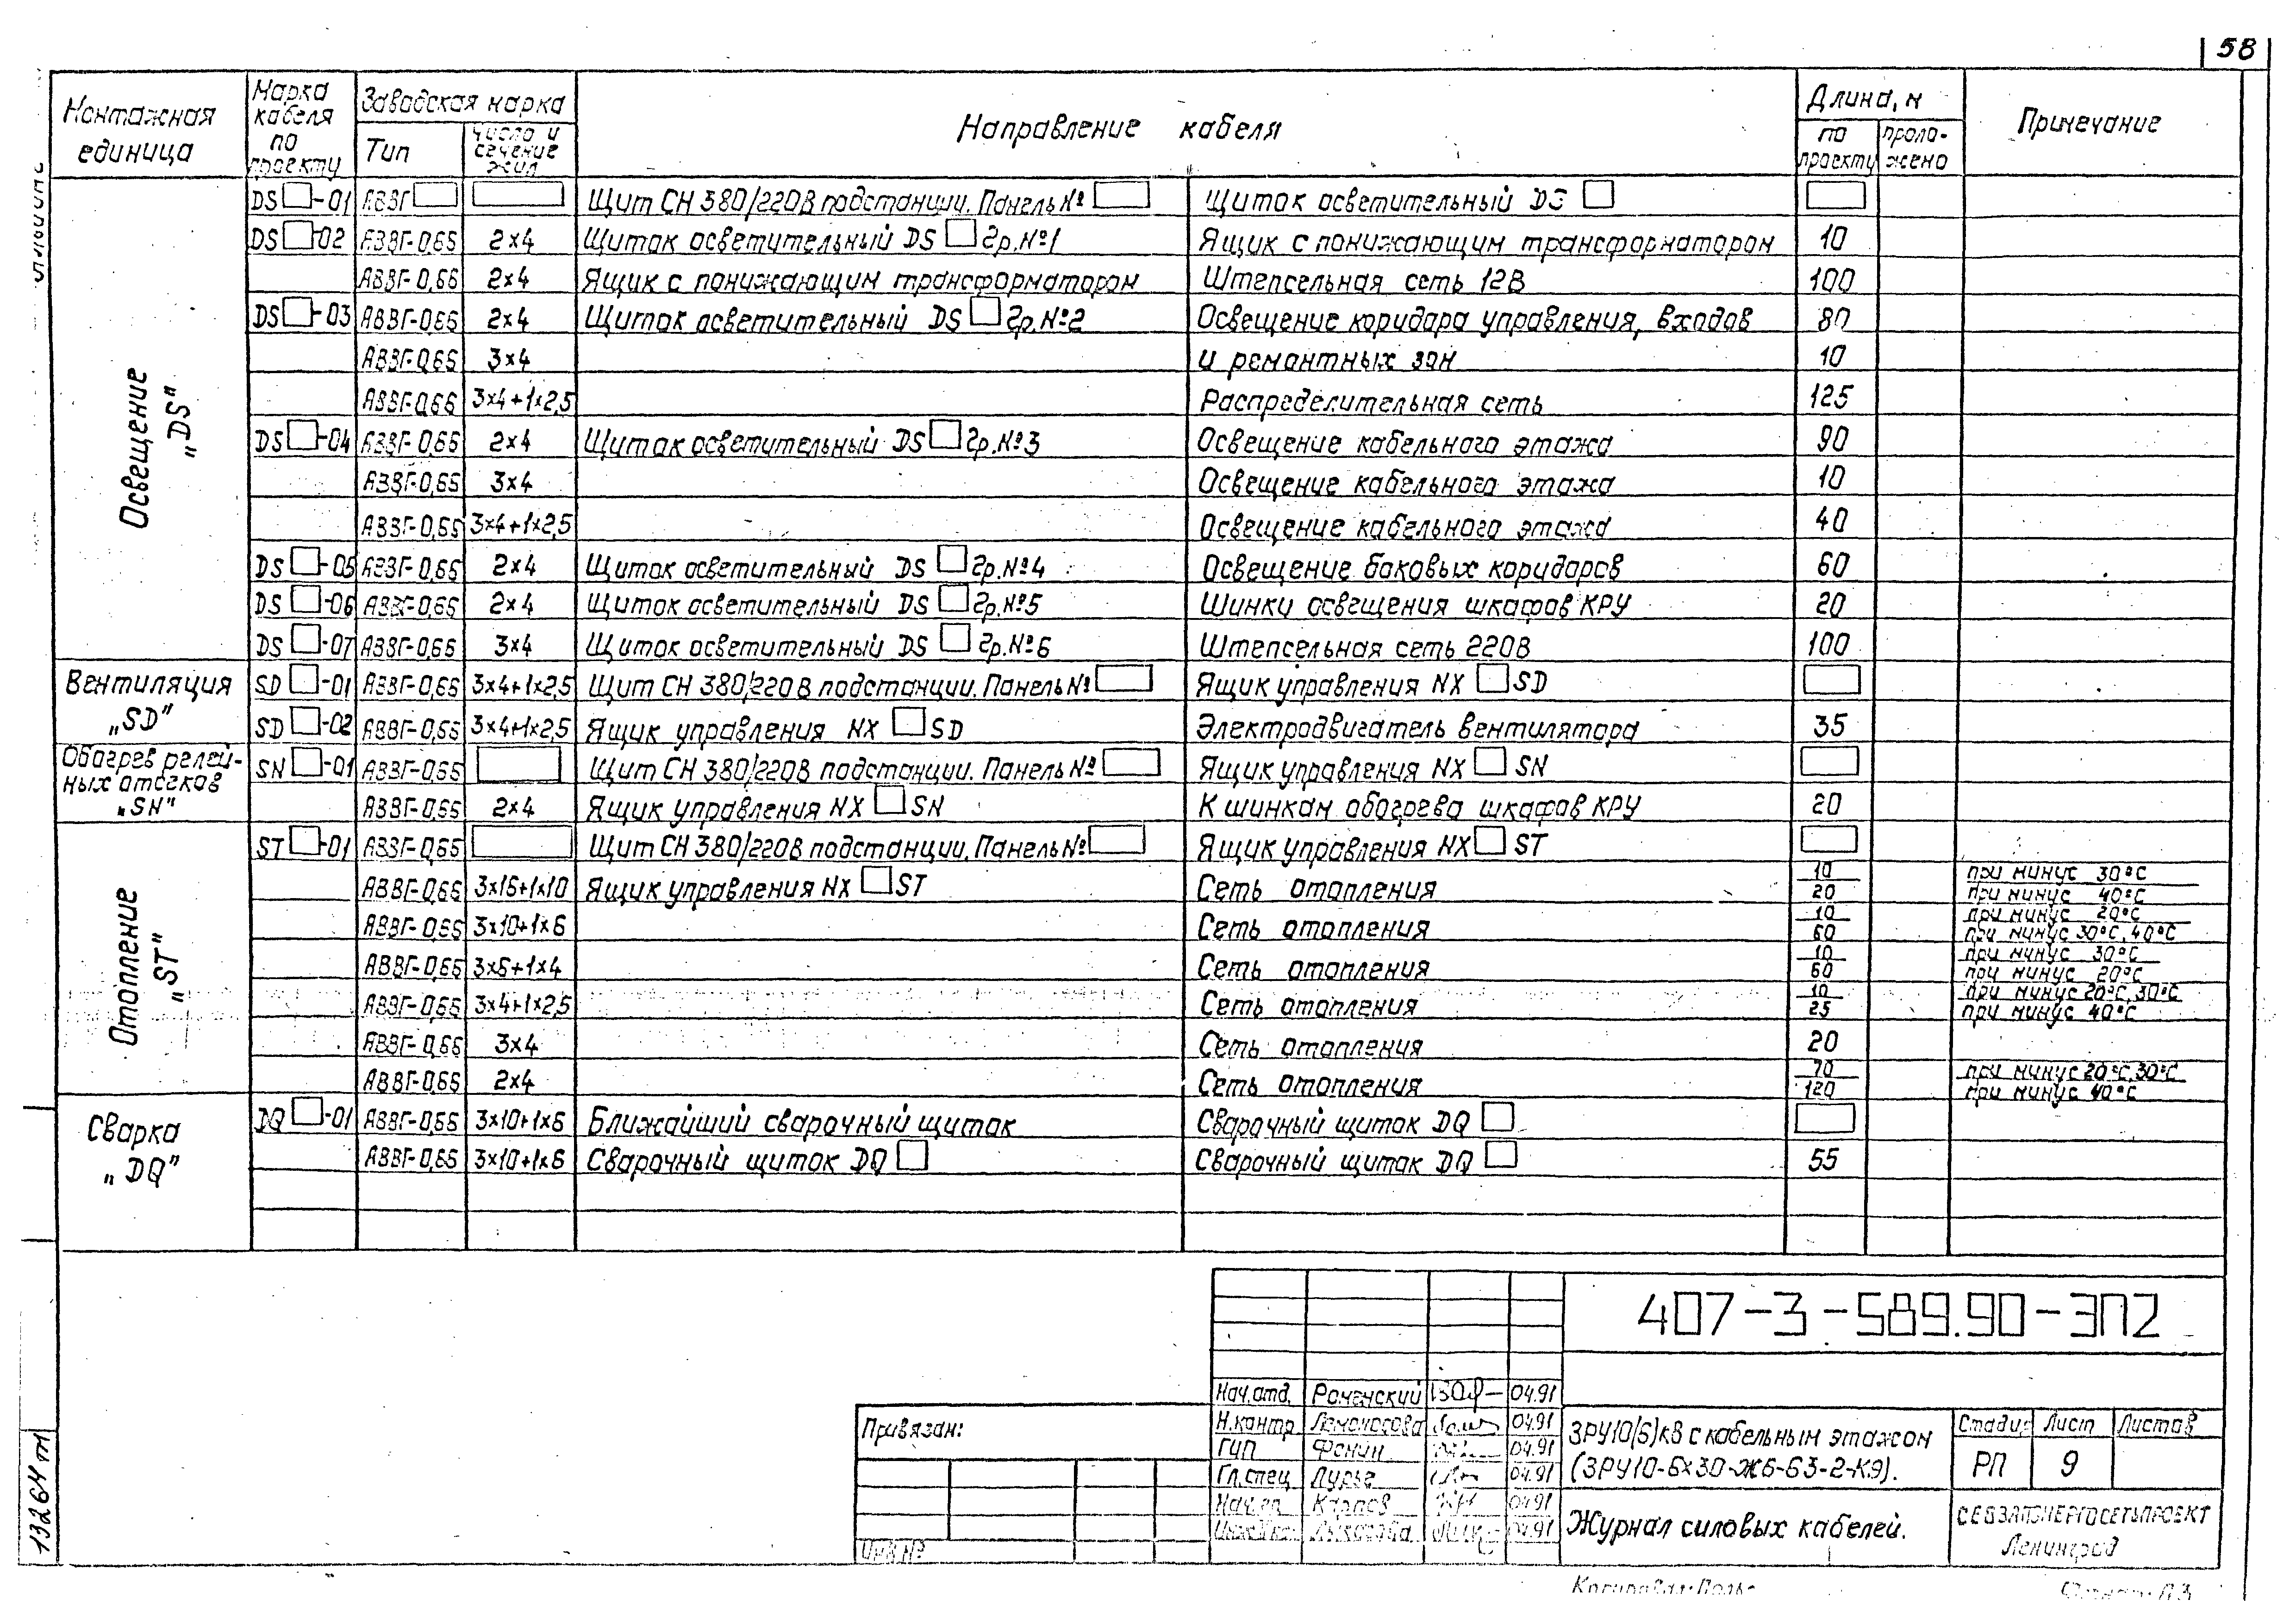 58
Монтажная единица
Марка кабеля по проекту
Заводская марка
Тип
число и сечение жил
Направление кабеля
Длина, м
по проекту
проложено
Примечание
Освещение „DS"
DS □-01 АВВГ □ □ Щит СН 380/220В подстанции. Панель № □ Щиток осветительный DS □ □
DS □-02 АВВГ-0,66 2×4 Щиток осветительный DS □ Гр.№1 Ящик с понижающим трансформатором 10
АВВГ-0,66 2×4 Ящик с понижающим трансформатором Штепсельная сеть 12В 100
DS □-03 АВВГ-0,66 2×4 Щиток осветительный DS □ Гр.№2 Освещение коридора управления, входов 80
АВВГ-0,66 3×4 и ремонтных зон 10
АВВГ-0,66 3×4+1×2,5 Распределительная сеть 125
DS □-04 АВВГ-0,66 2×4 Щиток осветительный DS □ Гр.№3 Освещение кабельного этажа 90
АВВГ-0,66 3×4 Освещение кабельного этажа 10
АВВГ-0,66 3×4+1×2,5 Освещение кабельного этажа 40
DS □-05 АВВГ-0,66 2×4 Щиток осветительный DS □ Гр.№4 Освещение боковых коридоров 60
DS □-06 АВВГ-0,66 2×4 Щиток осветительный DS □ Гр.№5 Шинки освещения шкафов КРУ 20
DS □-07 АВВГ-0,66 3×4 Щиток осветительный DS □ Гр.№6 Штепсельная сеть 220В 100
Вентиляция „SD"
SD □-01 АВВГ-0,66 3×4+1×2,5 Щит СН 380/220В подстанции. Панель № □ Ящик управления NX □ SD □
SD □-02 АВВГ-0,66 3×4+1×2,5 Ящик управления NX □ SD Электродвигатель вентилятора 35
Обогрев релей-
ных отсеков
„SN"
SN □-01 АВВГ-0,66 □ Щит СН 380/220В подстанции. Панель № □ Ящик управления NX □ SN □
АВВГ-0,66 2×4 Ящик управления NX □ SN К шинкам обогрева шкафов КРУ 20
Отопление „ST"
ST □-01 АВВГ-0,66 □ Щит СН 380/220В подстанции. Панель № □ Ящик управления NX □ ST □
АВВГ-0,66 3×16+1×10 Ящик управления NX □ ST Сеть отопления 10 при минус 30°С
20 при минус 40°С
АВВГ-0,66 3×10+1×6 Сеть отопления 10 при минус 20°С
60 при минус 30°С, 40°С
АВВГ-0,66 3×6+1×4 Сеть отопления 10 при минус 30°С
60 при минус 20°С
АВВГ-0,66 3×4+1×2,5 Сеть отопления 10 при минус 20°С, 30°С
25 при минус 40°С
АВВГ-0,66 3×4 Сеть отопления 20
АВВГ-0,66 2×4 Сеть отопления 70 при минус 20°С, 30°С
120 при минус 40°С
Сварка „DQ"
DQ □-01 АВВГ-0,66 3×10+1×6 Ближайший сварочный щиток Сварочный щиток DQ □ □
АВВГ-0,66 3×10+1×6 Сварочный щиток DQ □ Сварочный щиток DQ □ 55
407-3-589.90-ЭП2
Нач.отд. Роменский 04.91
Н.контр Ломоносова 04.91
ГИП Фомин 04.91
Гл.спец Лурье 04.91
Нач.гр. Карпов 04.91
04.91
Привязан:
Инв.№
ЗРУ10(6)кВ с кабельным этажом
(ЗРУ10-6×30-ЖБ-63-2-КЭ).
Стадия Лист Листов
РП 9
Журнал силовых кабелей.
СЕВЗАПЭНЕРГОСЕТЬПРОЕКТ
Ленинград
13264тм
Копировал:
Формат: А3